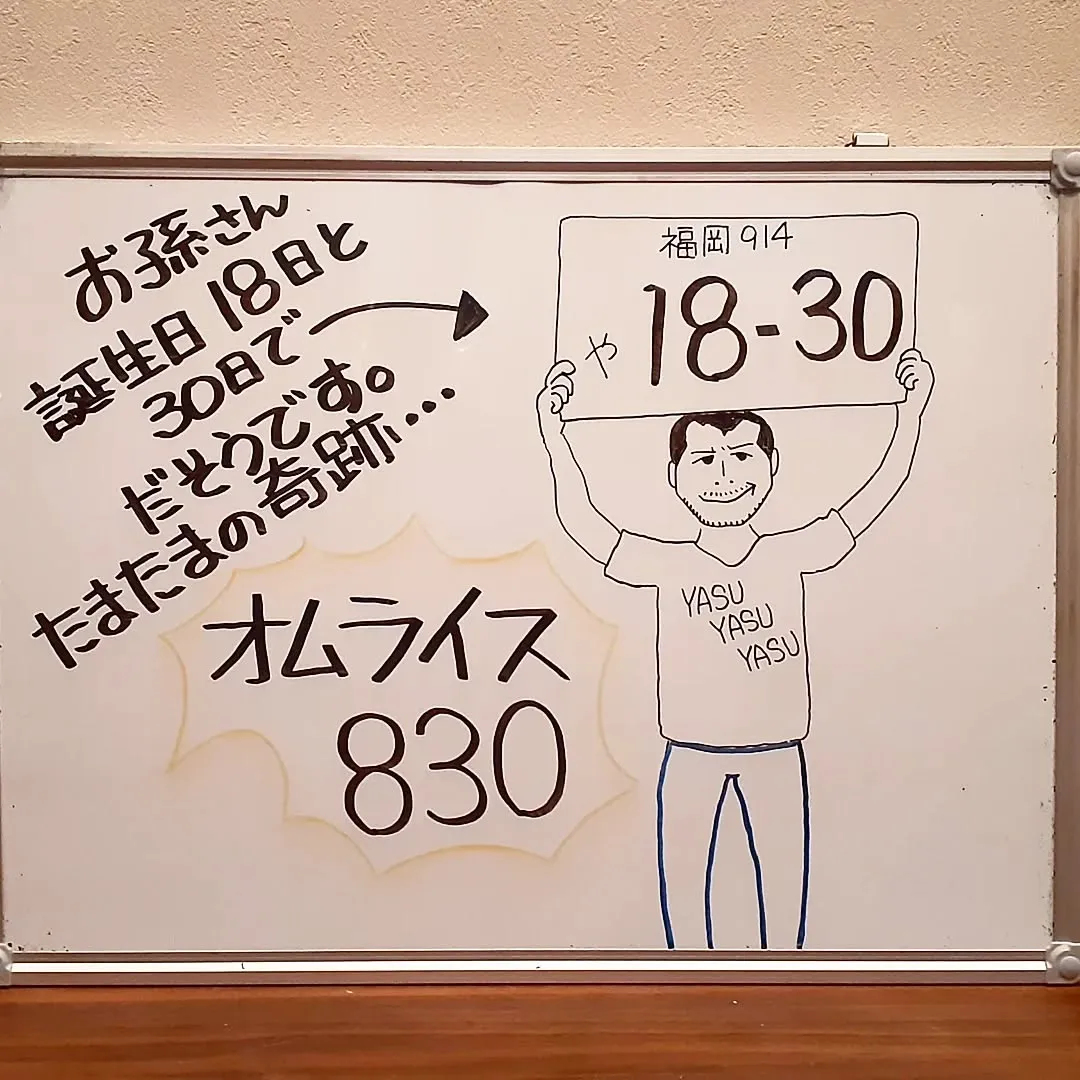 お孫さん
誕生日18日と
30日で
だそうです。
たまたまの奇跡…
福岡914
や 18-30
YASU
YASU
YASU
オムライス
830